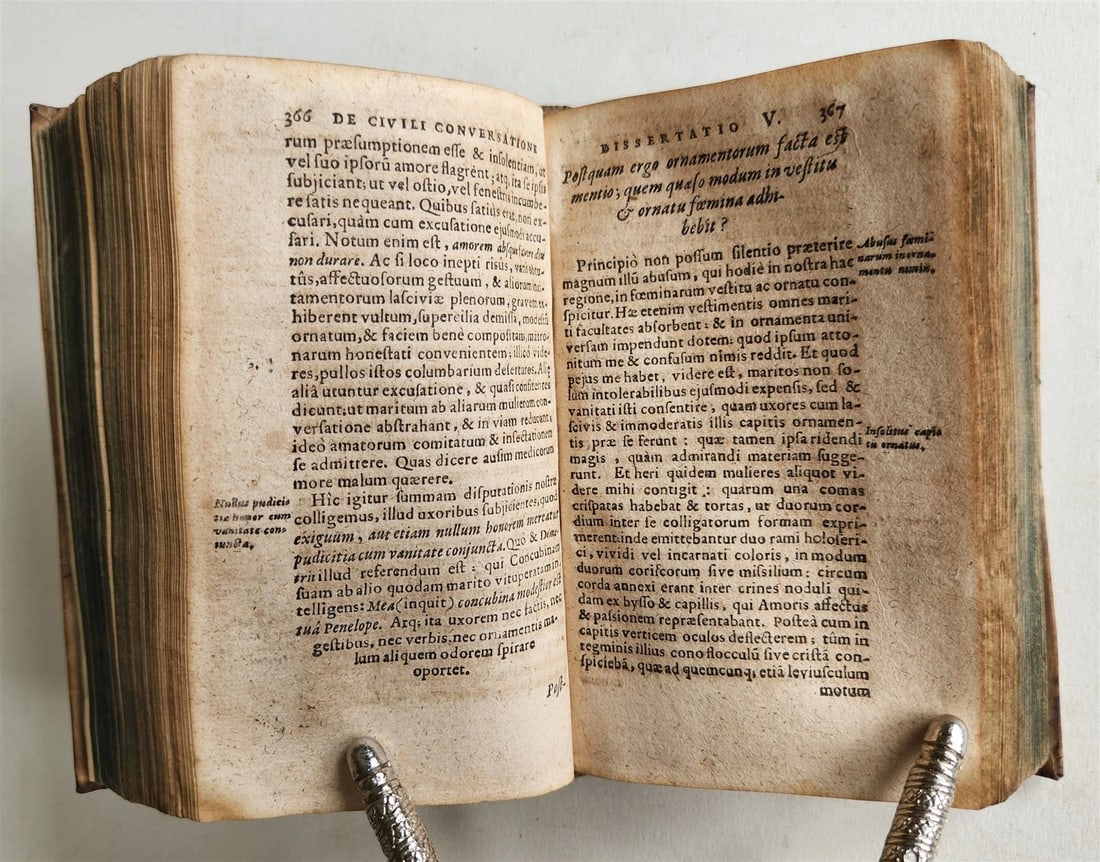 366 DE CIVILI CONVERSATIONE
rum præsumptionem esse & insolentiam, ut
vel suo ipsorũ amore flagrent; atq; ita se ipsis
subjiciant; ut vel ostio, vel fenestris incumbe-
re satis nequeant. Quibus satius erat, non ex-
cusari, quàm cum excusatione ejusmodi accu-
sari. Notum enim est, amorem absque
non durare. Ac si loco inepti risûs, vani
tûs, affectuosorum gestuum, & aliorum inci-
tamentorum lasciviæ plenorum, gravem ex-
hiberent vultum, supercilia demissa, modestũ
ornatum, & faciem benè compositam, matro-
narum honestati convenientem; illicò vide-
res, pullos istos columbarium deserturos. Aliæ
aliâ utuntur excusatione, & quasi confitentes
dicunt: ut maritum ab aliarum mulierum con-
versatione abstrahant, & in viam reducant,
ideò amatorum comitatum & insectationem
se admittere. Quas dicere ausim medicorum
more malum quærere.
Hîc igitur summam disputationis nostræ
colligemus, illud uxoribus subjicientes, quod
exiguum, aut etiam nullum honorem mereatur
pudicitia cum vanitate conjuncta. Quò & Deme-
trii illud referendum est: qui Concubinam
suam ab alio quodam marito vituperatam in-
telligens: Mea (inquit) concubina modestior est
tuâ Penelope. Atq; ita uxorem nec factis, nec
gestibus, nec verbis, nec ornamentis ma-
lum aliquem odorem spirare
oportet.
Post-
Nullus pudici-
tiæ honor cum
vanitate con-
juncta.
DISSERTATIO V. 367
Postquam ergo ornamentorum facta est
mentio; quem quæso modum in vestitu
& ornatu fœmina adhi-
bebit?
Principiò non possum silentio præterire
magnum illũ abusum, qui hodie in nostra hac
regione, in fœminarum vestitu ac ornatu con-
spicitur. Hæ etenim vestimentis omnes mari-
ti facultates absorbent: & in ornamenta uni-
versam impendunt dotem: quod ipsum atto-
nitum me & confusum nimis reddit. Et quod
pejus me habet, videre est, maritos non so-
lùm intolerabilibus ejusmodi expensis, sed &
vanitati isti consentire, quam uxores cum la-
scivis & immoderatis illis capitis ornamen-
tis præ se ferunt: quæ tamen ipsa ridendi
magis, quàm admirandi materiam sugge-
runt. Et heri quidem mulieres aliquot vi-
dere mihi contigit: quarum una comas
crispatas habebat & tortas, ut duorum cor-
dium inter se colligatorum formam expri-
merent: inde emittebantur duo rami holoseri-
ci, vividi vel incarnati coloris, in modum
duorum coriscorum sive missilium: circum
corda annexi erant inter crines noduli qui-
dam ex bysso & capillis, qui Amoris affectus
& passionem repræsentabant. Posteà cum in
capitis verticem oculos deflecterem; tùm in
tegminis illius cono flocculũ sive cristã con-
spiciebã, quæ ad quemcunq; etiã leviusculum
motum
Abusus fœmi-
narum in orna-
mentu nimius.
Insolitus capi-
tis ornatus.